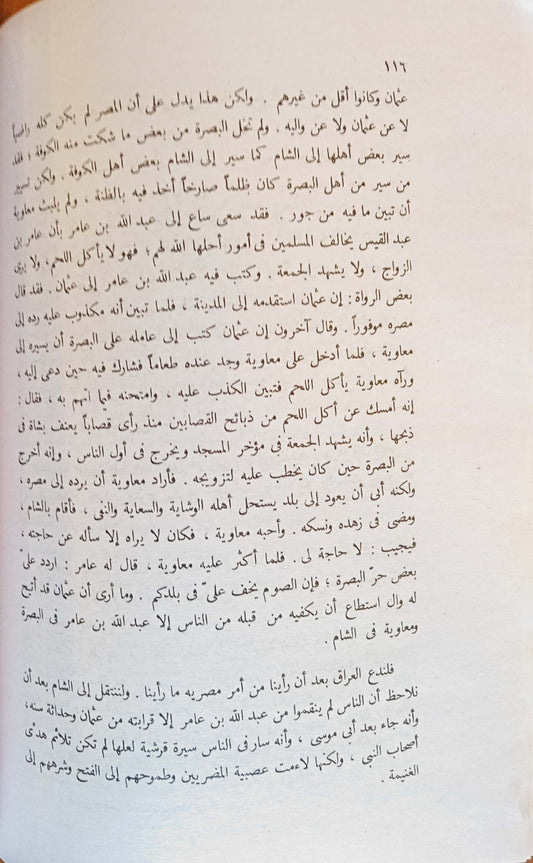 ١١٦
عثمان وكانوا أقل من غيرهم . ولكن هذا يدل على أن المصر لم يكن كله راضياً
لا عن عثمان ولا عن واليه . ولم تخل البصرة من بعض ما شكت منه الكوفة ؛ فقد
سير بعض أهلها إلى الشام كما سير إلى الشام بعض أهل الكوفة . ولكن تسيير
من سير من أهل البصرة كان ظلماً صارخاً أخذ فيه بالظنة ، ولم يلبث معاوية
أن تبين ما فيه من جور . فقد سعى ساع إلى عبد الله بن عامر بأن عامر بن
عبد القيس يخالف المسلمين فى أمور أحلها الله لهم ؛ فهو لا يأكل اللحم ، ولا يرى
الزواج ، ولا يشهد الجمعة . وكتب فيه عبد الله بن عامر إلى عثمان . فقد قال
بعض الرواة : إن عثمان استقدمه إلى المدينة ، فلما تبين أنه مكذوب عليه رده إلى
مصره موفوراً . وقال آخرون إن عثمان كتب إلى عامله على البصرة أن يسيره إلى
معاوية ، فلما أدخل على معاوية وجد عنده طعاماً فشارك فيه حين دعى إليه ،
ورآه معاوية يأكل اللحم فتبين الكذب عليه ، وامتحنه فيما اتهم به ، فقال :
إنه أمسك عن أكل اللحم من ذبائح القصابين منذ رأى قصاباً يعنف بشاة فى
ذبحها ، وأنه يشهد الجمعة فى مؤخر المسجد ويخرج فى أول الناس ، وإنه أخرج
من البصرة حين كان يخطب عليه لتزويجه . فأراد معاوية أن يرده إلى مصره ،
ولكنه أبى أن يعود إلى بلد يستحل أهله الوشاية والسعاية والنفى ، فأقام بالشام ،
ومضى فى زهده ونسكه . وأحبه معاوية ، فكان لا يراه إلا سأله عن حاجته ،
فيجيب : لا حاجة لى . فلما أكثر عليه معاوية ، قال له عامر : اردد علىّ
بعض حرّ البصرة ؛ فإن الصوم يخف علىّ فى بلدكم . وما أرى أن عثمان قد أتيح
له وال استطاع أن يكفيه من قبله من الناس إلا عبد الله بن عامر فى البصرة
ومعاوية فى الشام .
فلندع العراق بعد أن رأينا من أمر مصريه ما رأينا . ولننتقل إلى الشام بعد أن
نلاحظ أن الناس لم ينقموا من عبد الله بن عامر إلا قرابته من عثمان وحداثة سنه ،
وأنه جاء بعد أبى موسى ، وأنه سار فى الناس سيرة قرشية لعلها لم تكن تلائم هدْى
أصحاب النبى ، ولكنها لاءمت عصبية المضريين وطموحهم إلى الفتح وشرههم إلى
الغنيمة .